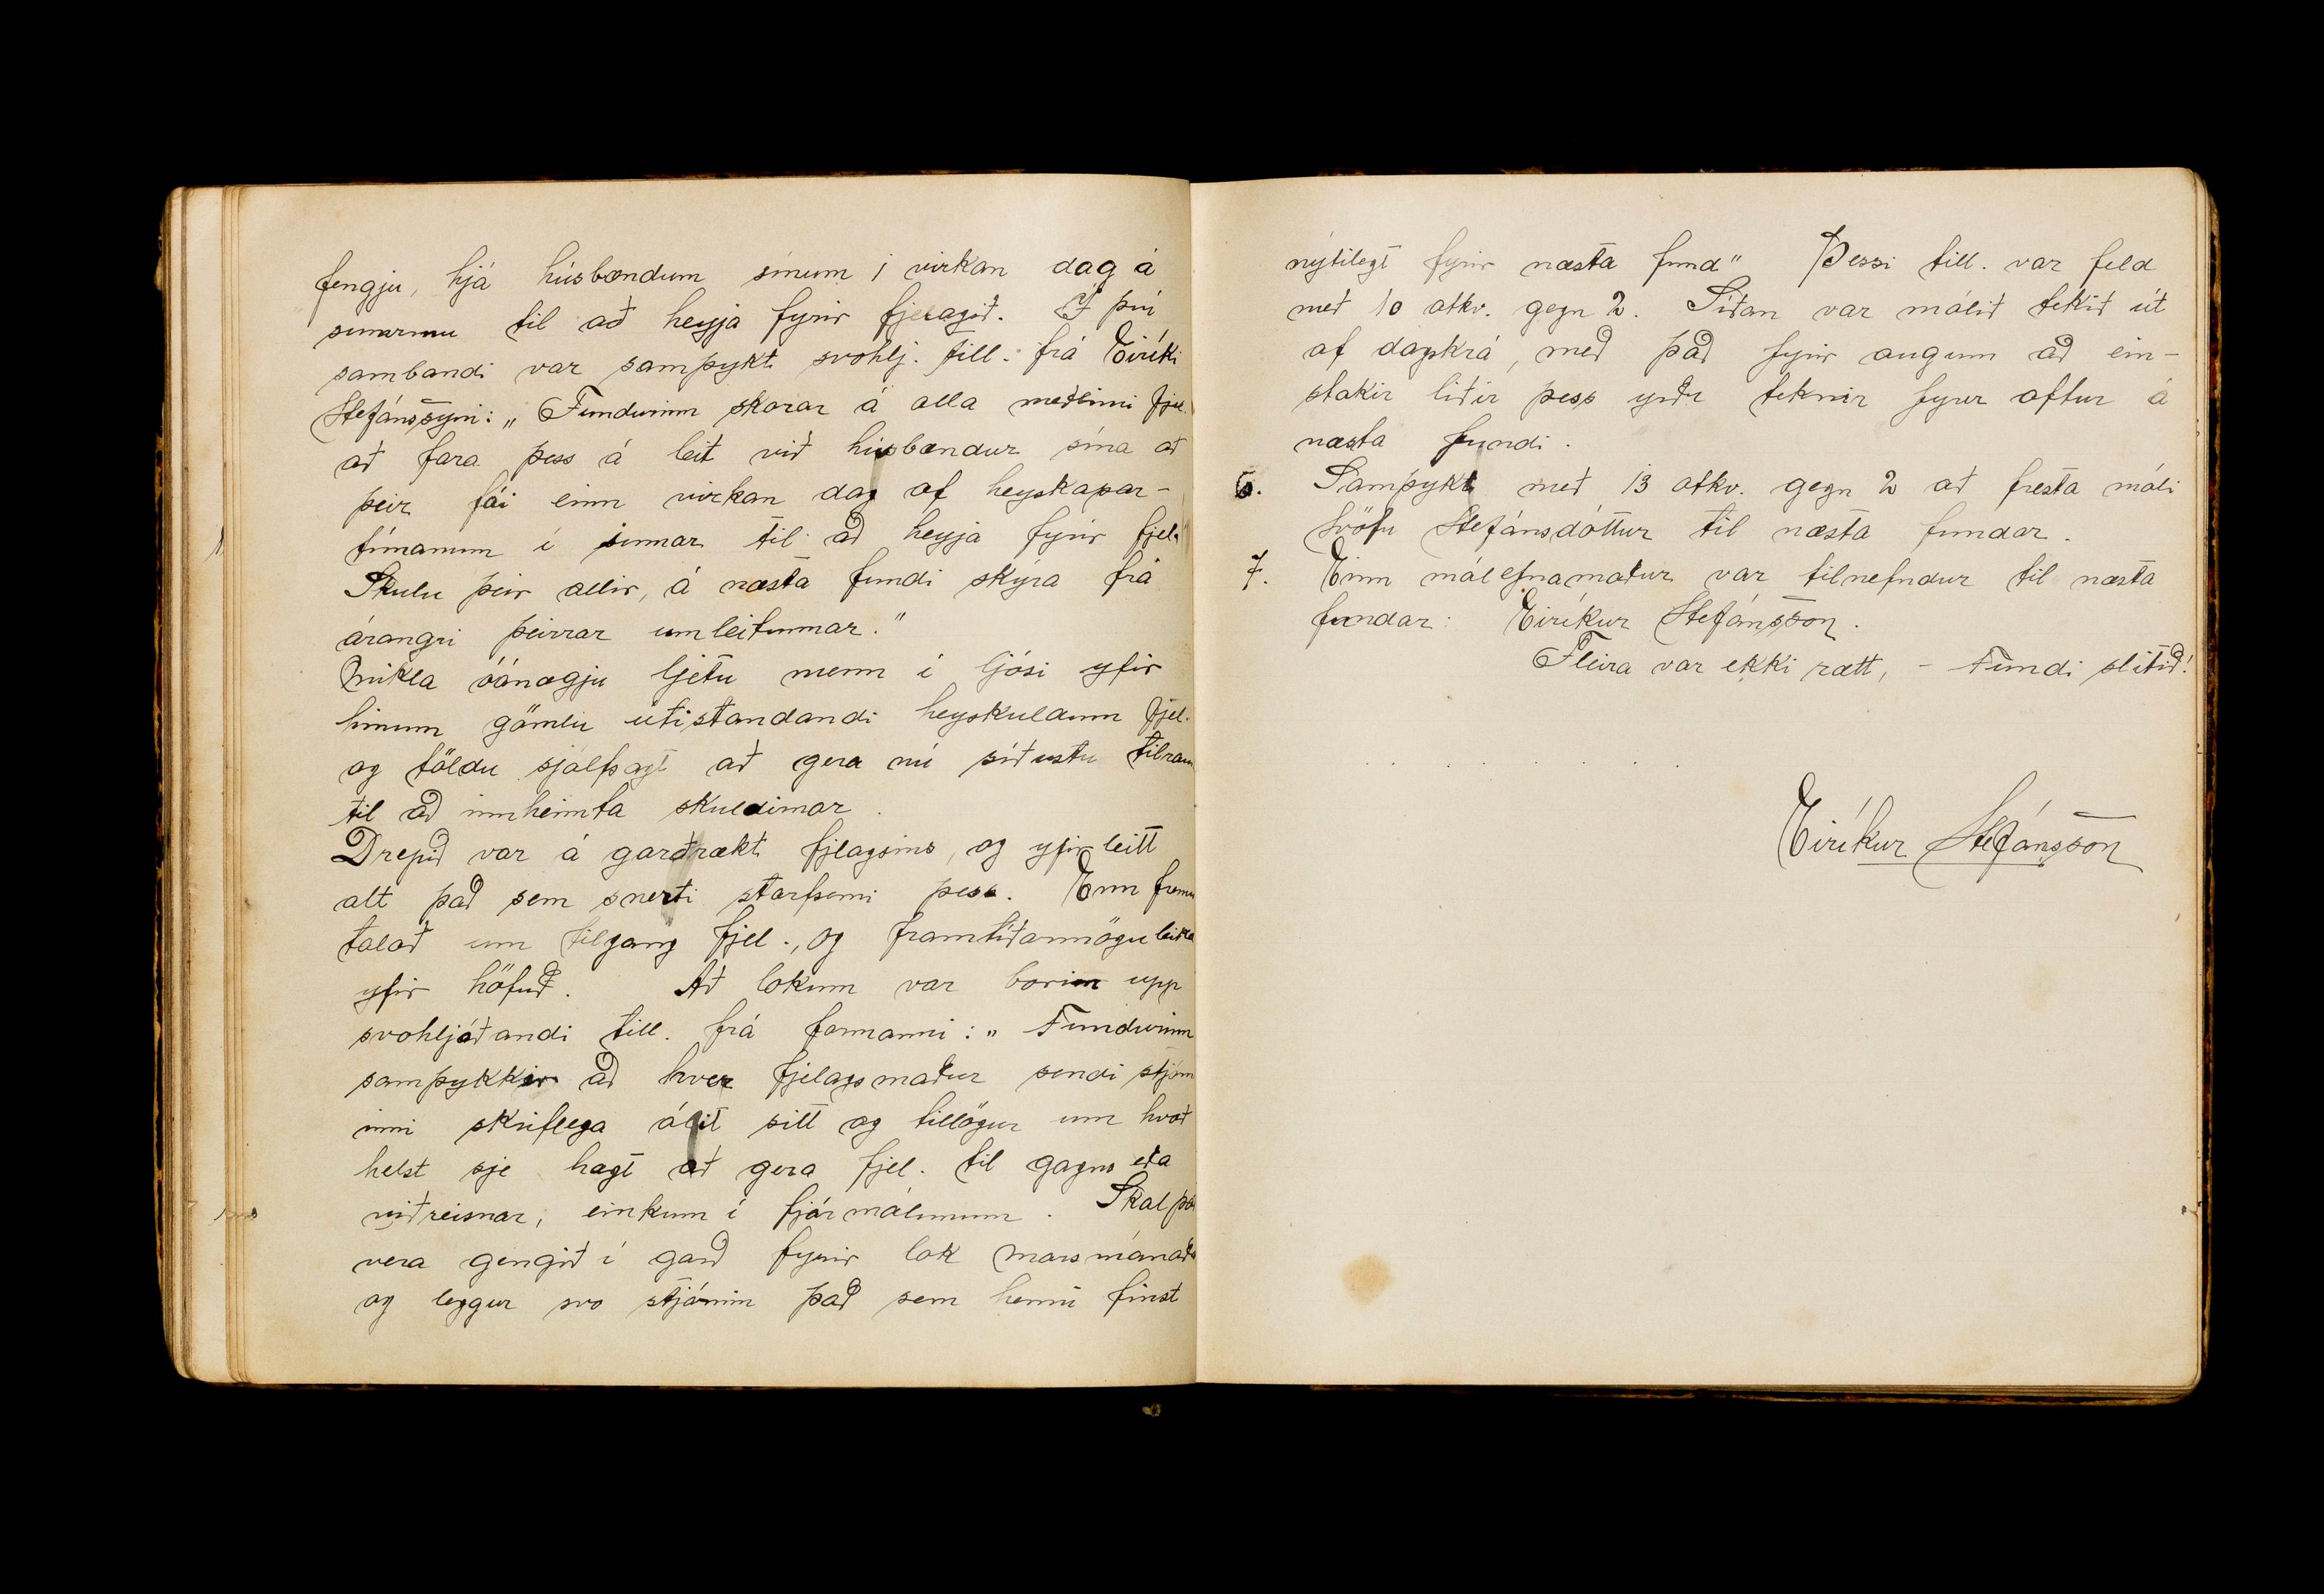 fengju, hjá húsbændum sínum 1 virkan dag á
sumrinu til að heyja fyrir fjelagið. Í því
sambandi var samþykt svohlj. till. frá Eiríki
Stefánssyni: „Fundurinn skorar á alla meðlimi fjel.
að fara þess á leit við húsbændur sína að
þeir fái einn virkan dag af heyskapar-
tímanum í sumar til að heyja fyrir fjel.
Skulu þeir allir, á næsta fundi skýra frá
árangri þeirrar umleitunnar."
Mikla óánægju ljetu menn í ljósi yfir
hinum gömlu útistandandi heyskuldum fjel.
og töldu sjálfsagt að gera nú síðustu tilraun
til að innheimta skuldirnar.
Drepið var á garðrækt fjelagsins, og yfirleitt
alt það sem snerti starfsemi þess. Enn fremur
talað um tilgang fjel., og framtíðarmöguleika
yfir höfuð. Að lokum var borin upp
svohljóðandi till. frá formanni: „Fundurinn
samþykkir að hver fjelagsmaður sendi stjórn
inni skriflega álit sitt og tillögur um hvað
helst sje hægt að gera fjel. til gagns eða
viðreisnar, einkum í fjármálunum. Skal það
vera gengið í garð fyrir lok marsmánaðar
og leggur svo stjórnin það sem henni finst
nýtilegt fyrir næsta fund" Þessi till. var feld
með 10 atkv. gegn 2. Síðan var málið tekið út
af dagskrá, með það fyrir augum að ein-
stakir liðir þess yrðu teknir fyrir aftur á
næsta fundi.
6. Samþykt með 13 atkv. gegn 2 að fresta máli
Svöfu Stefánsdóttur til næsta fundar.
7. Einn málefnamaður var tilnefndur til næsta
fundar: Eiríkur Stefánsson.
Fleira var ekki rætt, - Fundi slitið!
Eiríkur Stefánsson